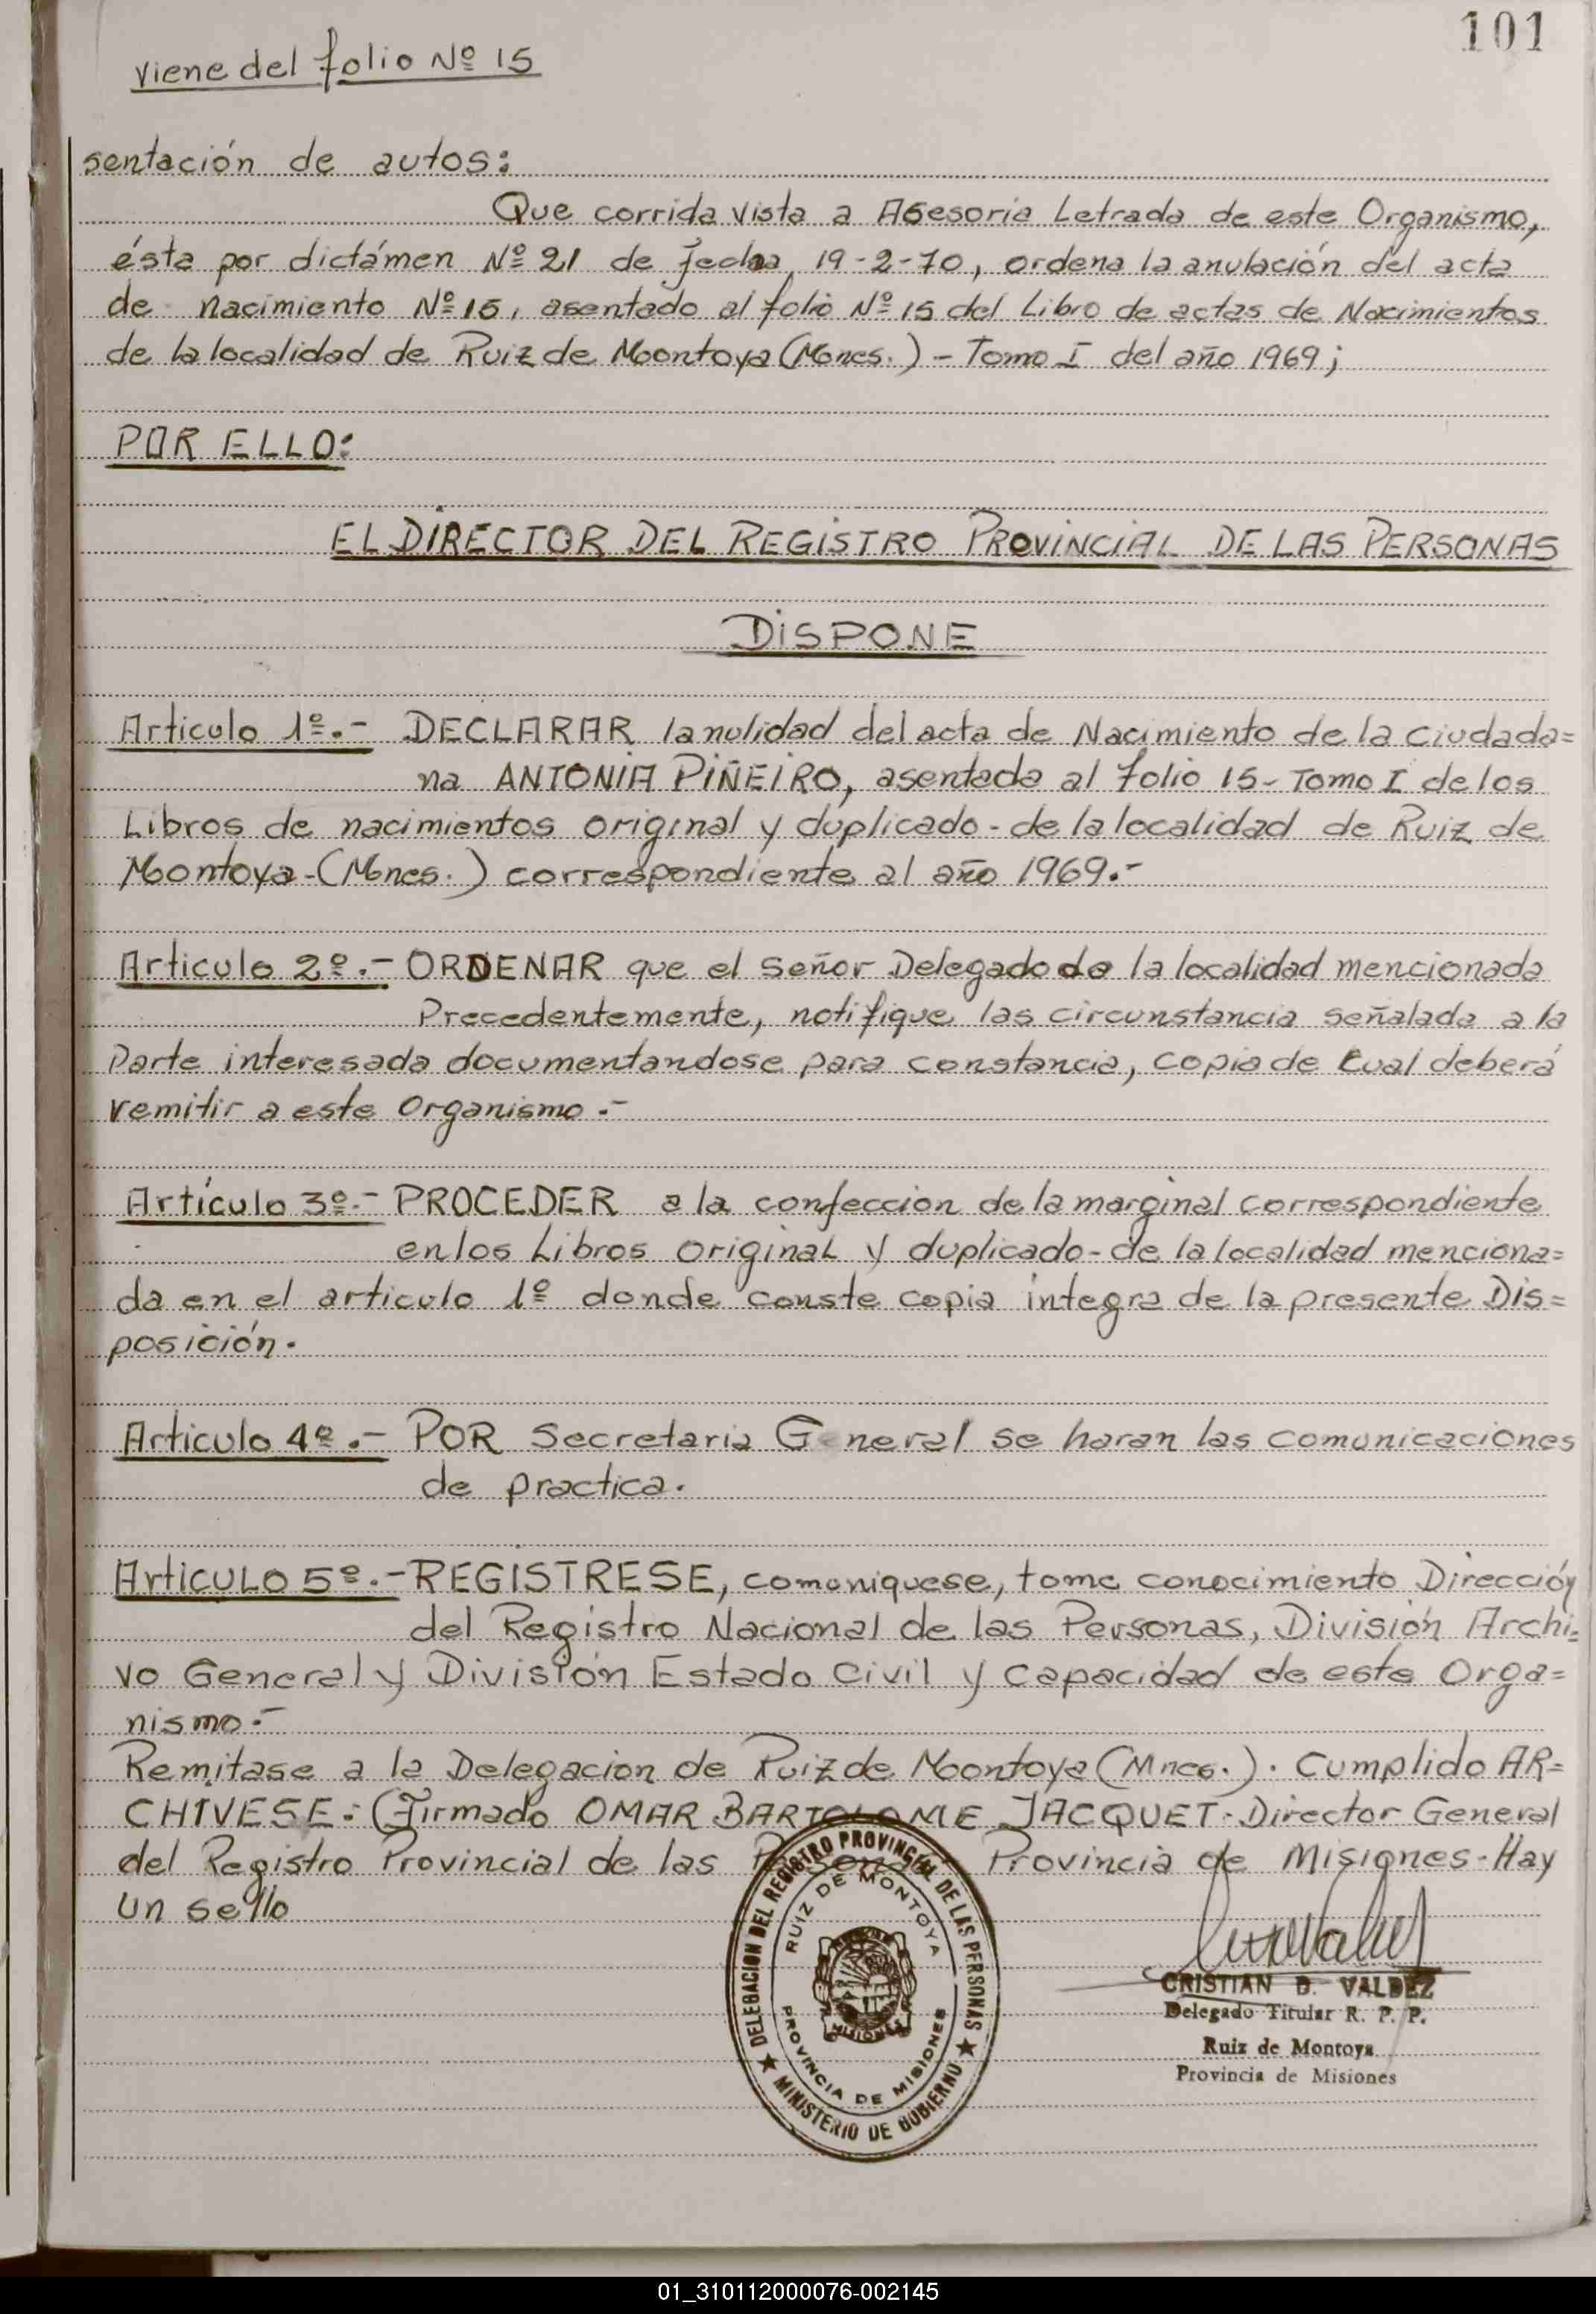 101
viene del folio Nº 15
sentación de autos:
Que corrida vista a Asesoria Letrada de este Organismo,
ésta por dictámen Nº 21 de fecha, 19-2-70, ordena la anulación del acta
de nacimiento Nº 15, asentado al folio Nº 15 del Libro de actas de Nacimientos
de la localidad de Ruiz de Moontoya (Mones.) - Tomo I del año 1969;
POR ELLO:
EL DIRECTOR DEL REGISTRO PROVINCIAL DE LAS PERSONAS
DISPONE
Articulo 1º.- DECLARAR la nulidad del acta de Nacimiento de la ciudada=
na ANTONIA PIÑEIRO, asentada al folio 15- Tomo I de los
Libros de nacimientos original y duplicado- de la localidad de Ruiz de
Montoya-(Mones.) correspondiente al año 1969.-
Articulo 2º.- ORDENAR que el señor Delegado de la localidad mencionada
Precedentemente, notifique las circunstancia señalada a la
Parte interesada documentandose para constancia, copia de cual deberá
remitir a este Organismo.-
Artículo 3º.- PROCEDER a la confeccion de la marginal correspondiente
en los Libros original y duplicado- de la localidad menciona=
da en el articulo 1º donde conste copia integra de la presente Dis=
posición.
Articulo 4º.- POR Secretaria General se haran las comunicaciones
de practica.
Articulo 5º.- REGISTRESE, comuniquese, tome conocimiento Dirección
del Registro Nacional de las Personas, División Archi=
vo General y División Estado Civil y capacidad de este Orga=
nismo.-
Remitase a la Delegacion de Ruiz de Moontoya (Mnes.). Cumplido AR=
CHIVESE.- (Firmado OMAR BARTOLOME JACQUET- Director General
del Registro Provincial de las Personas Provincia de Misiones- Hay
un sello
DELEGACION DEL REGISTRO PROVINCIAL DE LAS PERSONAS
RUIZ DE MONTOYA
MISIONES
PROVINCIA DE MISIONES
MINISTERIO DE GOBIERNO
CRISTIAN D. VALDEZ
Delegado Titular R. P. P.
Ruiz de Montoya
Provincia de Misiones
01_310112000076-002145